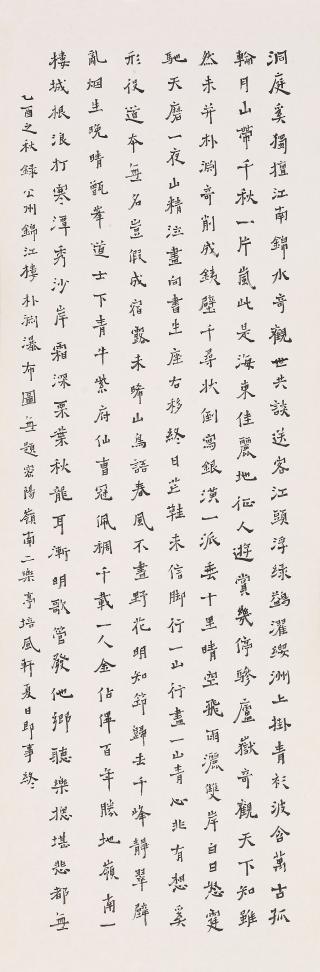 洞庭奚獨擅江南錦水奇觀世共談送客江頭浮綠鷁濯纓洲上掛青衫波含萬古孤
輪月山帶千秋一片嵐此是海東佳麗地征人遊賞幾停驂廬嶽奇觀天下知雖
然未并朴淵奇削成銕壁千尋狀倒寫銀潢一派垂十里晴空飛雨灑雙岸白日怒霆
馳天磨一夜山精泣畫向書生座右移終日芒鞋未信脚行一山行盡一山青心非有想奚
形役道本無名豈假成宿露未晞山鳥語春風不盡野花明知節歸去千峰靜翠壁
亂烟生晩晴甑峯道士下青牛紫府仙曹冠佩稠千載一人金佔畢百年勝地嶺南一
樓城根浪打寒潭秀沙岸霜深栗葉秋龍耳漸明歌管發他鄉聽樂摠堪悲都無
乙酉之秋錄公州錦江樓朴淵瀑布圖無題密陽嶺南二樂亭培風軒夏日即事終